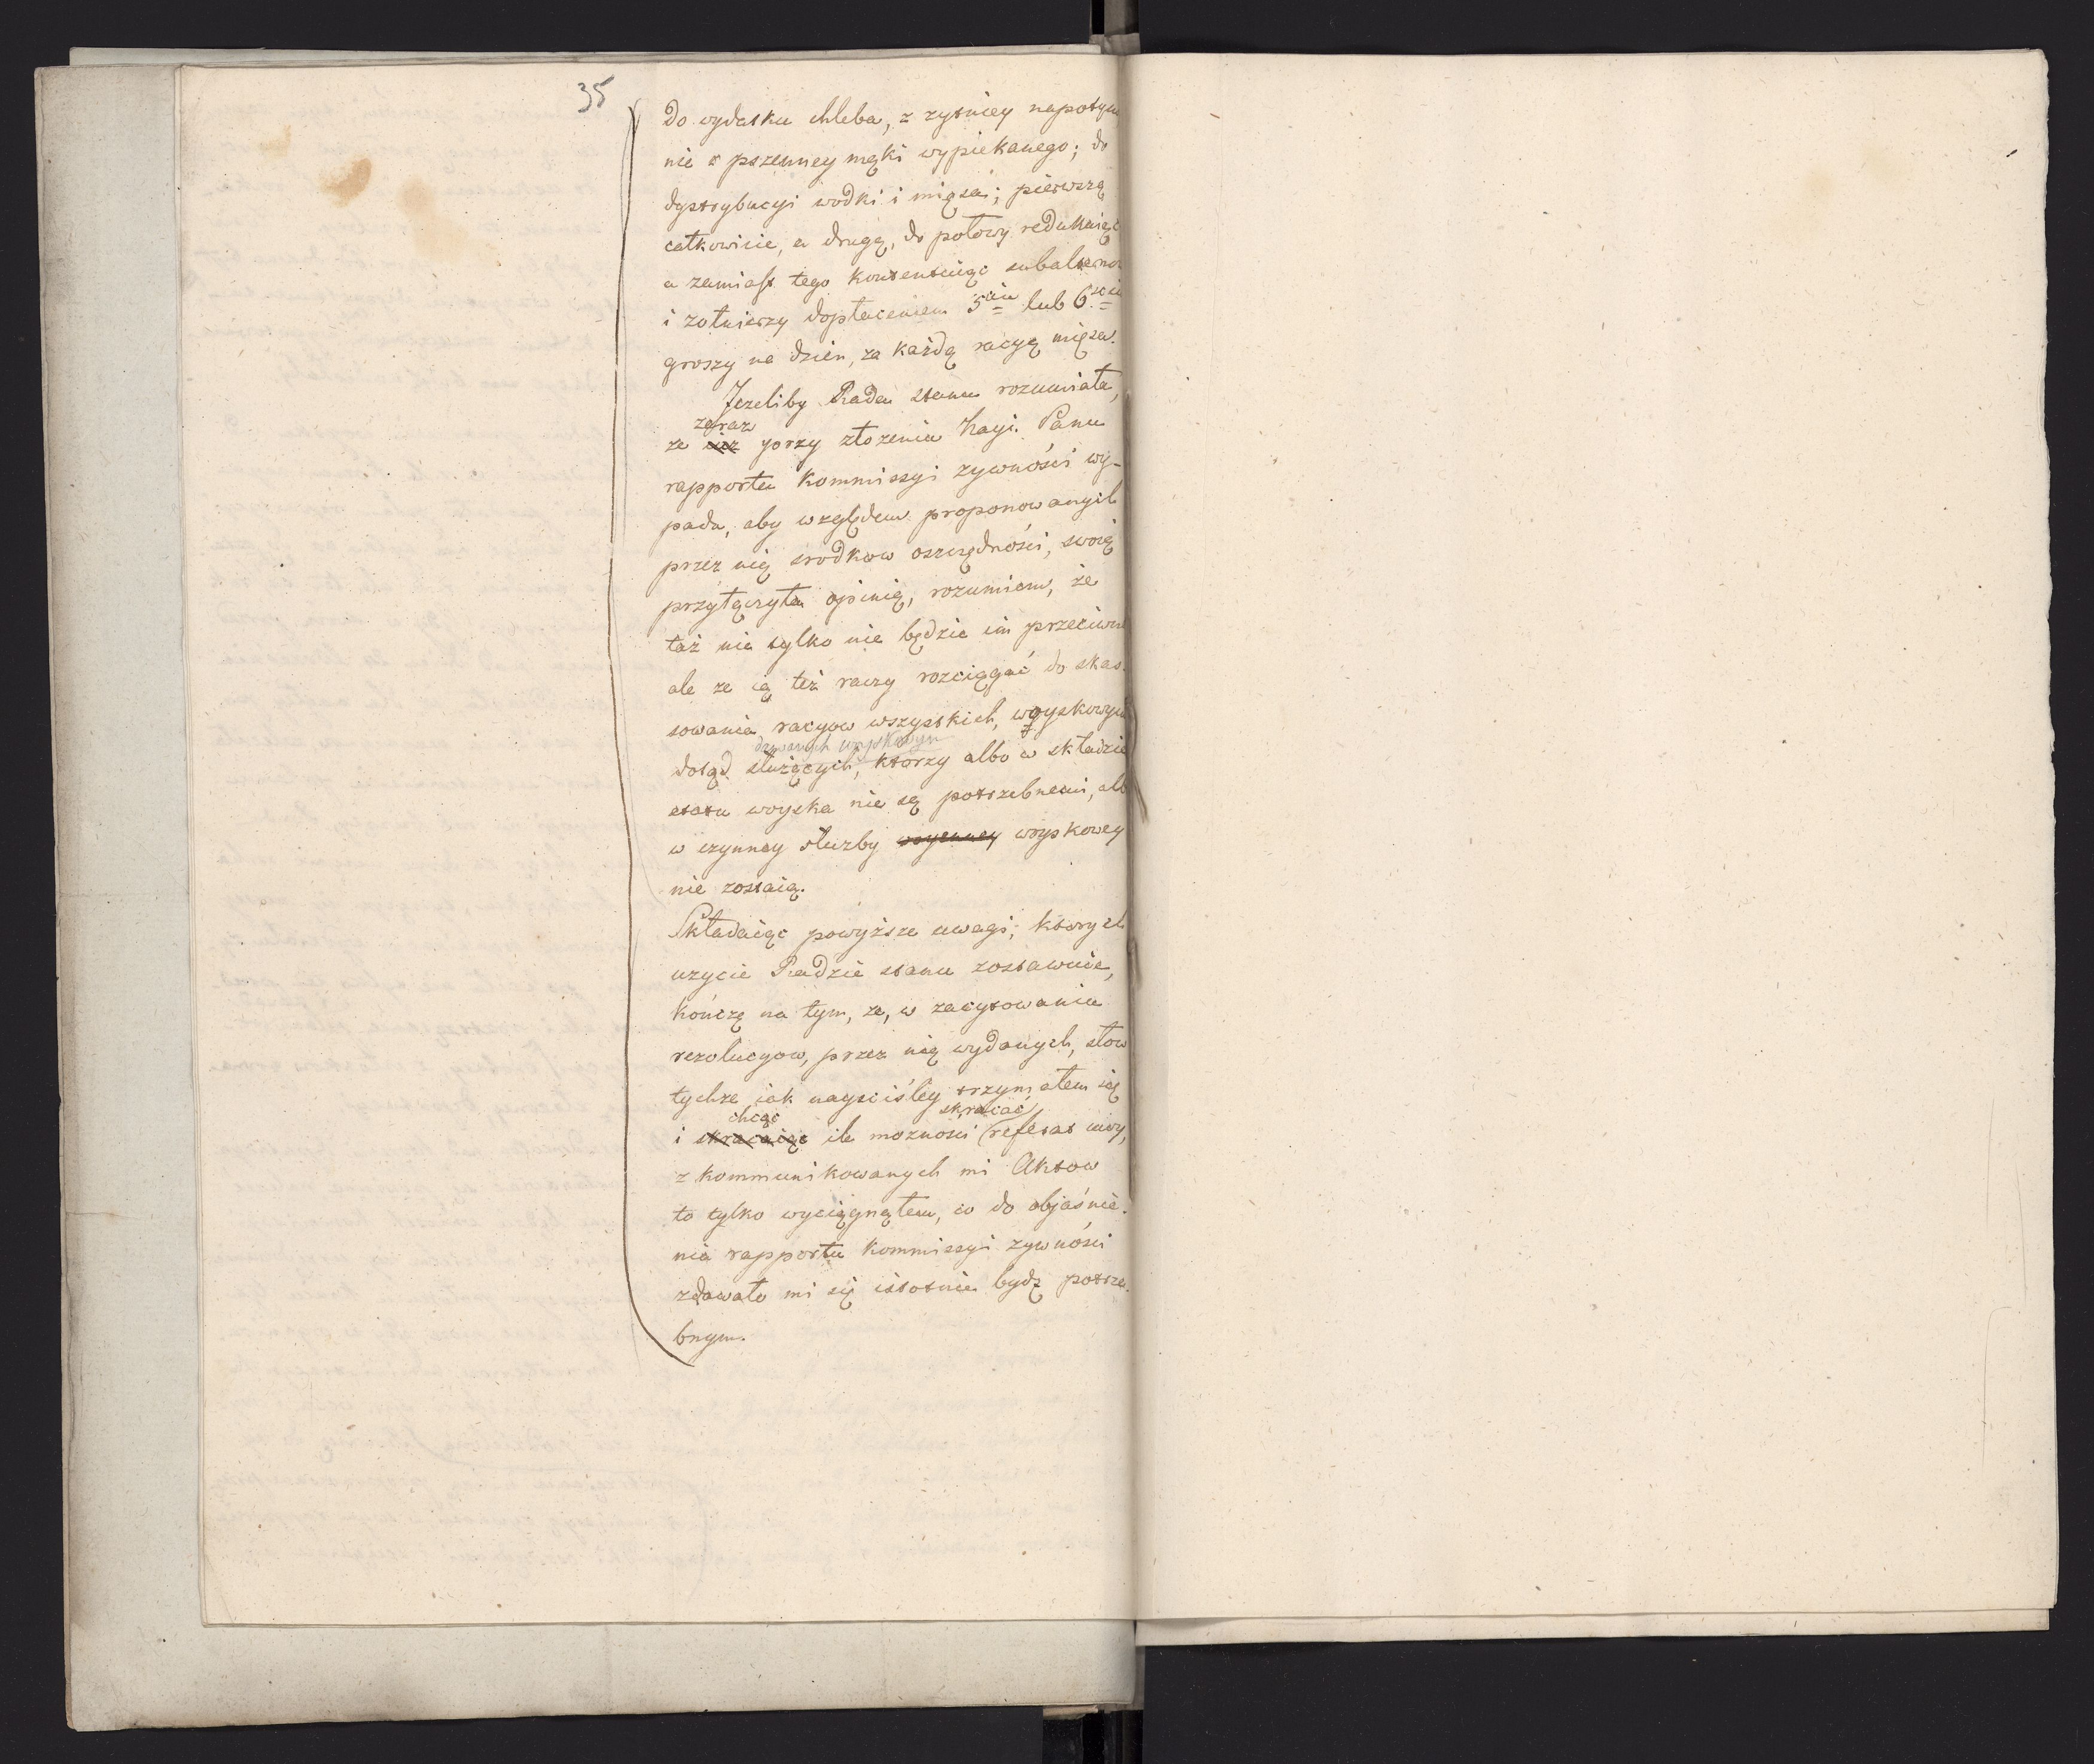 35
do wydatku chleba, z rytniey napotym
nie z pszenney mąki wypiekanego; do
dystrybucyi wodki i mięsa; pierwszą
całkowicie, a drugą, do połowy redukuiąc
a zamiast tego kontentuiąc subalternow
i zołnierzy dopłaceniem 5ciu lub 6ściu
groszy na dzień, za każdą racyą mięsa.
Jezeliby Rada stanu rozumiała,
zaraz
ze przy złozeniu Nayi. Panu
rapportu Kommissyi zywności wy-
pada, aby względem proponowanych
przez nią srodkow oszczędności, swoią
przyłączyła opinią, rozumiem, że
taż nie tylko nie będzie im przeciwna
ale ze ią też raczy rozciągać do skas-
sowania racyow wszystkich, woyskowym
dawanych woyskowym
dotąd służących, ktorzy albo w składzie
etatu woyska nie są potrzebnemi, alb
w czynney służby woyenney woyskowey
nie zostaią.
Składaiąc powyższe uwagi, ktorych
uzycie Radzie stanu zostawuię,
kończę na tym, ze, w zacytowaniu
rezolucyow, przez nią wydanych, słow
tychze iak nayściśley trzymałem się
chcąc skracać
i skracaiąc ile moznosci referat moy,
z kommunikowanych mi Aktow
to tylko wyciągnąłem, co do objaśnie-
nia rapportu Kommissyi zywności
zdawało mi się istotnie bydź potrze-
bnym.